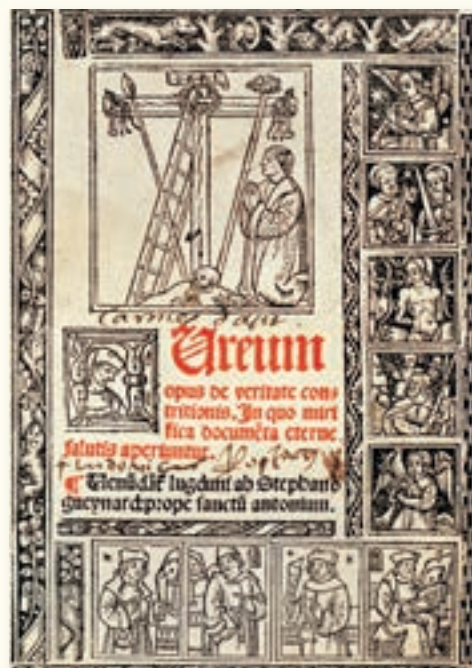 Aureum
opus de veritate con⸗
tritionis. In quo miri
fica documēta eterne
salutis aperiuntur.
¶ Venūdāt̄ lugduni ab Stephano
gueynard prope sanctū antonium.